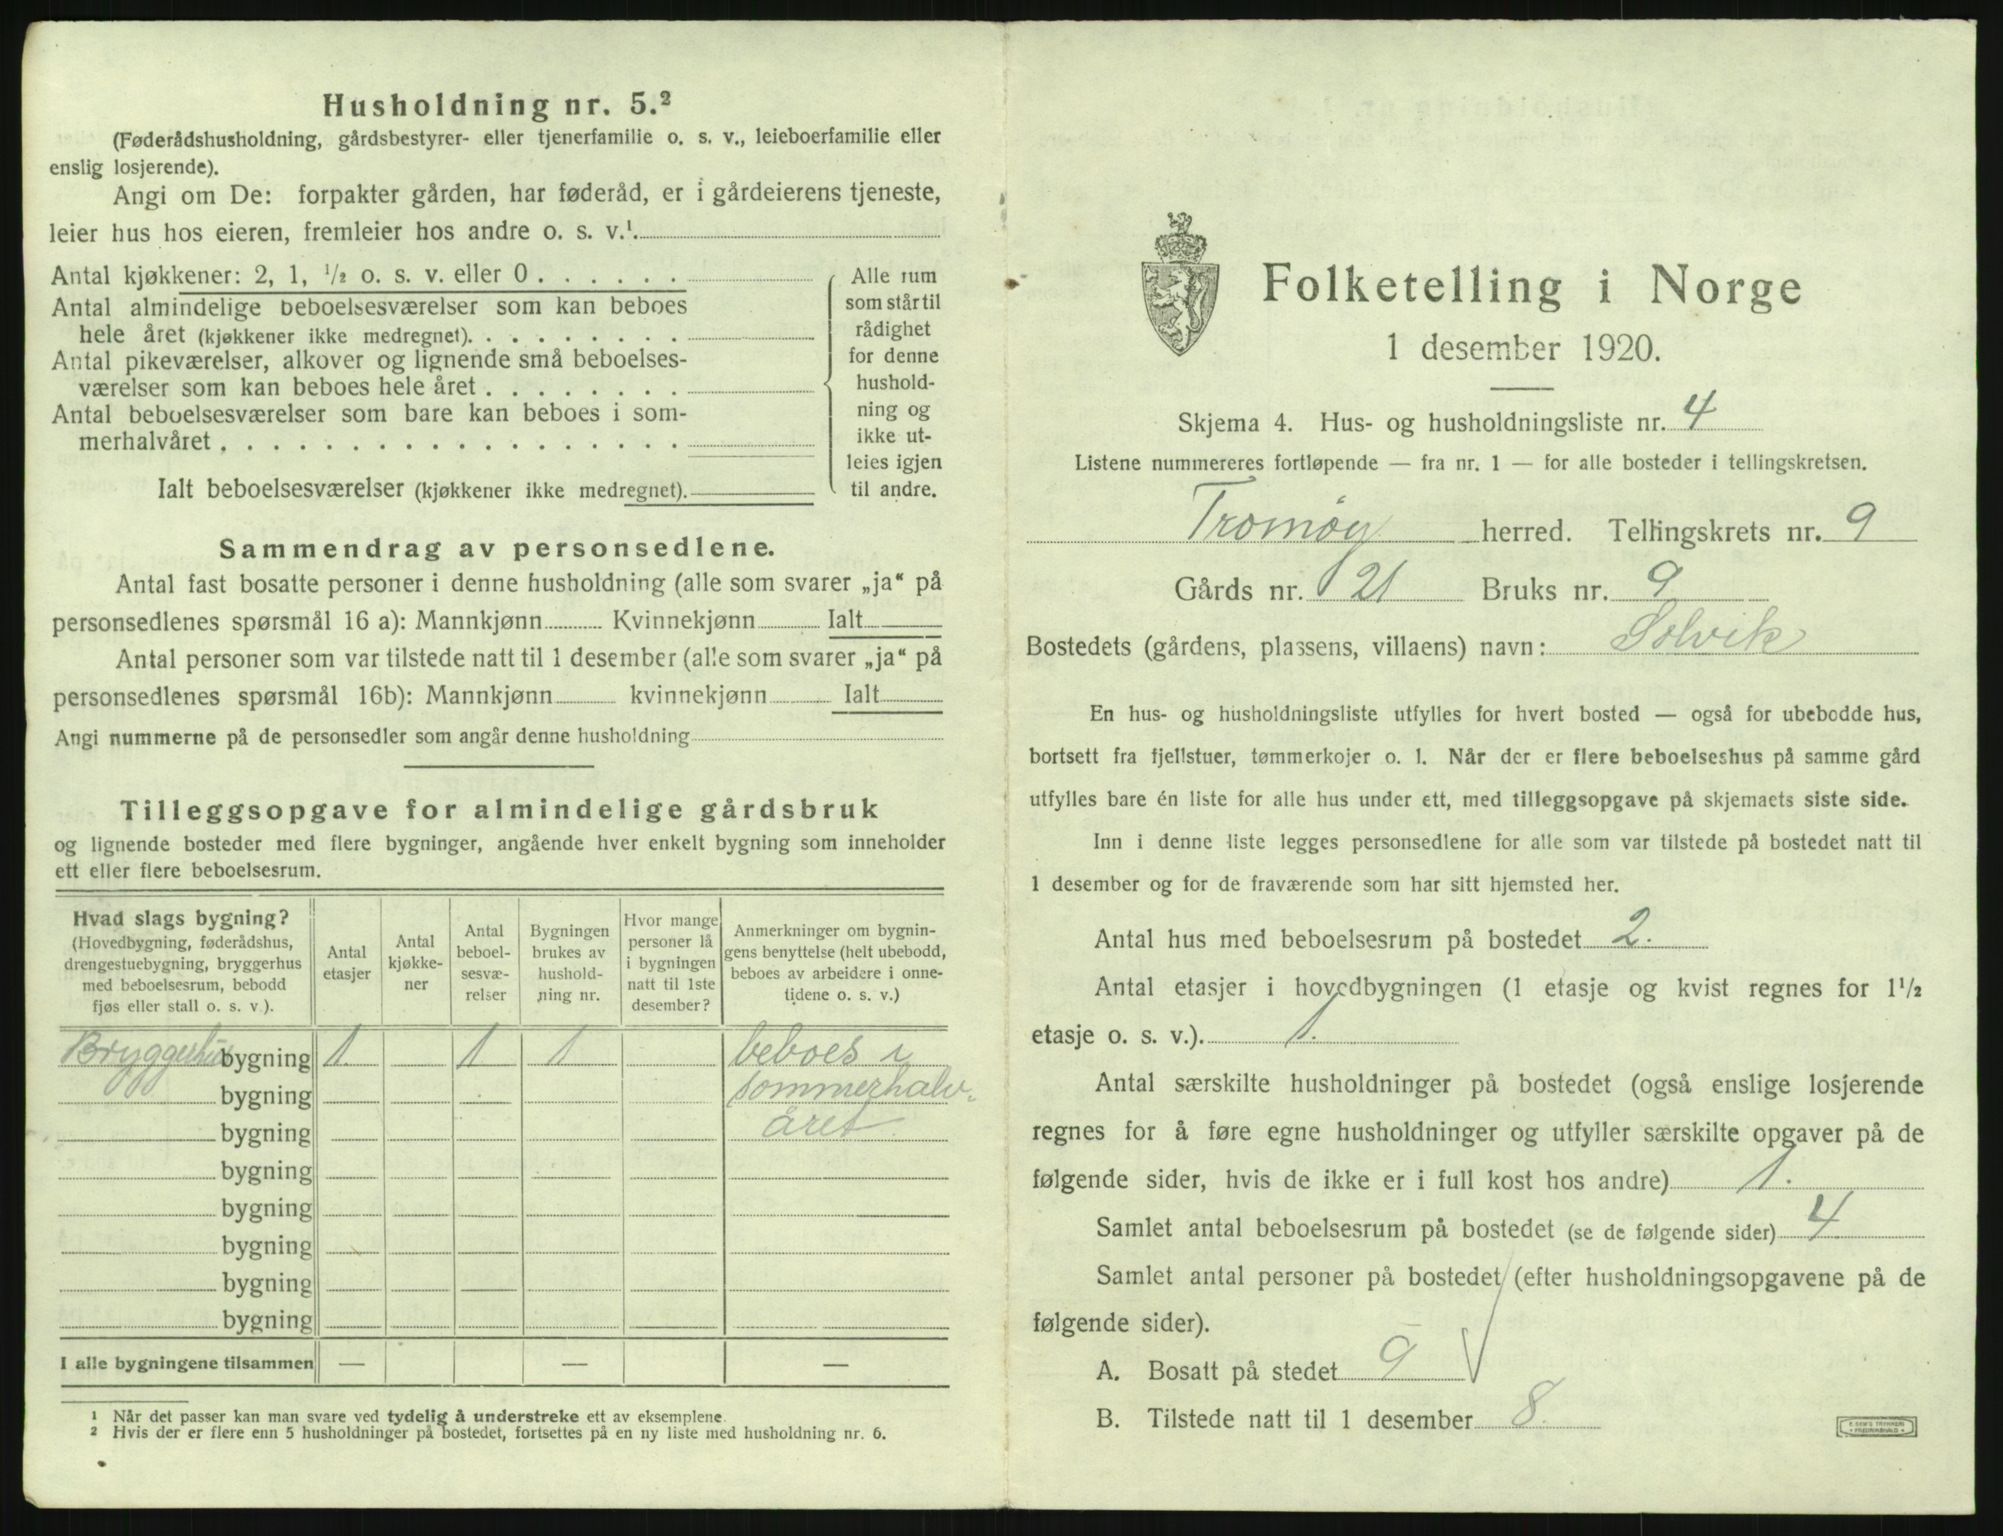 Husholdning nr. 5.²
(Føderådshusholdning, gårdsbestyrer- eller tjenerfamilie o. s. v., leieboerfamilie eller
enslig losjerende).
Angi om De: forpakter gården, har føderåd, er i gårdeierens tjeneste,
leier hus hos eieren, fremleier hos andre o. s. v.¹
Antal kjøkkener: 2, 1, ½ o. s. v. eller 0 . . . . . .
Antal almindelige beboelsesværelser som kan beboes
hele året (kjøkkener ikke medregnet). . . . . . . . .
Antal pikeværelser, alkover og lignende små beboelses-
værelser som kan beboes hele året . . . . . . . .
Antal beboelsesværelser som bare kan beboes i som-
merhalvåret . . . . . . . . . . . . . . . . . .
Ialt beboelsesværelser (kjøkkener ikke medregnet).
Alle rum
som står til
rådighet
for denne
hushold-
ning og
ikke ut-
leies igjen
til andre.
Sammendrag av personsedlene.
Antal fast bosatte personer i denne husholdning (alle som svarer „ja“ på
personsedlenes spørsmål 16 a): Mannkjønn Kvinnekjønn Ialt
Antal personer som var tilstede natt til 1 desember (alle som svarer „ja“ på
personsedlenes spørsmål 16b): Mannkjønn kvinnekjønn Ialt
Angi nummerne på de personsedler som angår denne husholdning
Tilleggsopgave for almindelige gårdsbruk
og lignende bosteder med flere bygninger, angående hver enkelt bygning som inneholder
ett eller flere beboelsesrum.
Hvad slags bygning?
(Hovedbygning, føderådshus,
drengestuebygning, bryggerhus
med beboelsesrum, bebodd
fjøs eller stall o. s. v.).
Antal
etasjer
Antal
kjøkke-
ner
Antal
beboel-
sesvæ-
relser
Bygningen
brukes av
hushold-
ning nr.
Hvor mange
personer lå
i bygningen
natt til 1ste
desember?
Anmerkninger om bygnin-
gens benyttelse (helt ubebodd,
beboes av arbeidere i onne-
tidene o. s. v.)
Bryggerhus bygning 1 1 1 beboes i
bygning sommerhalv-
bygning året
bygning
bygning
bygning
bygning
bygning
I alle bygningene tilsammen — — —
¹ Når det passer kan man svare ved tydelig å understreke ett av eksemplene.
² Hvis der er flere enn 5 husholdninger på bostedet, fortsettes på en ny liste med husholdning nr. 6.
Folketelling i Norge
1 desember 1920.
Skjema 4. Hus- og husholdningsliste nr. 4
Listene nummereres fortløpende — fra nr. 1 — for alle bosteder i tellingskretsen.
Tromøy herred. Tellingskrets nr. 9
Gårds nr. 21 Bruks nr. 9
Bostedets (gårdens, plassens, villaens) navn: Solvik
En hus- og husholdningsliste utfylles for hvert bosted — også for ubebodde hus,
bortsett fra fjellstuer, tømmerkojer o. l. Når der er flere beboelseshus på samme gård
utfylles bare én liste for alle hus under ett, med tilleggsopgave på skjemaets siste side.
Inn i denne liste legges personsedlene for alle som var tilstede på bostedet natt til
1 desember og for de fraværende som har sitt hjemsted her.
Antal hus med beboelsesrum på bostedet 2.
Antal etasjer i hovedbygningen (1 etasje og kvist regnes for 1½
etasje o. s. v.). 1.
Antal særskilte husholdninger på bostedet (også enslige losjerende
regnes for å føre egne husholdninger og utfyller særskilte opgaver på de
følgende sider, hvis de ikke er i full kost hos andre) 1.
Samlet antal beboelsesrum på bostedet (se de følgende sider) 4
Samlet antal personer på bostedet (efter husholdningsopgavene på de
følgende sider).
A. Bosatt på stedet 9
B. Tilstede natt til 1 desember 8.